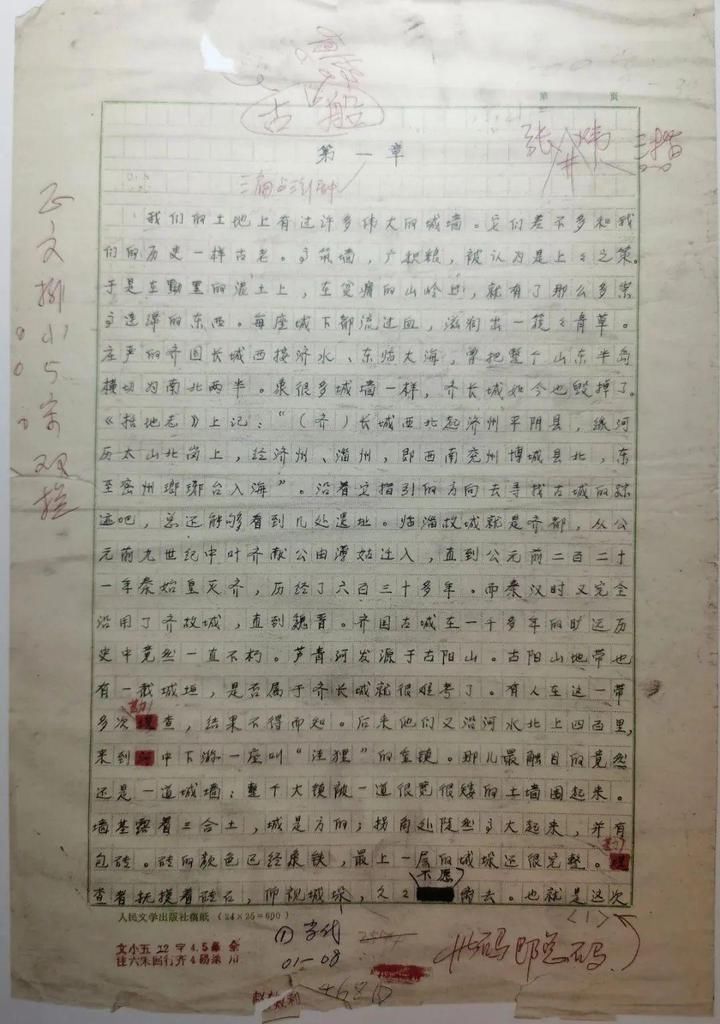 古船
第 页
张炜
第一章
我们的土地上有过许多伟大的城墙。它们差不多和我
们的历史一样古老。高筑墙，广积粮，被认为是上上之策。
于是在黝黑的泥土上，在贫瘠的山岭上，就有了那么多案
高逶迤的东西。每座城下都流过血，滋润出一茏茏青草。
庄严的齐国长城西接济水、东临大海，曾把整个山东半岛
横切为南北两半。象很多城墙一样，齐长城如今也毁掉了。
《括地志》上记：“（齐）长城西北起济州平阴县，缘河
历太山北岗上，经济州、淄州，即西南兖州博城县北，东
至密州琅琊台入海”。沿着它指引的方向去寻找古城的踪
迹吧，总还能够看到几处遗址。临淄故城就是齐都，从公
元前九世纪中叶齐献公由薄姑迁入，直到公元前二百二十
一年秦始皇灭齐，历经了六百三十多年。而秦汉时又完全
沿用了齐故城，直到魏晋。齐国古城在一千多年的旷远历
史中竟然一直不朽。芦青河发源于古阳山。古阳山地带也
有一截城垣，是否属于齐长城就很难考了。有人在这一带
多次勘查，结果不得而知。后来他们又沿河水北上四百里，
来到河中下游一座叫“洼狸”的重镇。那儿最触目的竟然
还是一道城墙：整个大镇被一道很宽很矮的土墙围起来。
墙基露着三合土，城是方的；拐角处陡然高大起来，并有
包砖。砖的颜色已经象铁，最上一层的城垛还很完整。勘
查者抚摸着砖石，仰视城垛，久久不愿离去。也就是这次
正文排小5宋双挖
人民文学出版社稿纸（24×25=600）
〈1〉
①当代
01—08
此码即总码